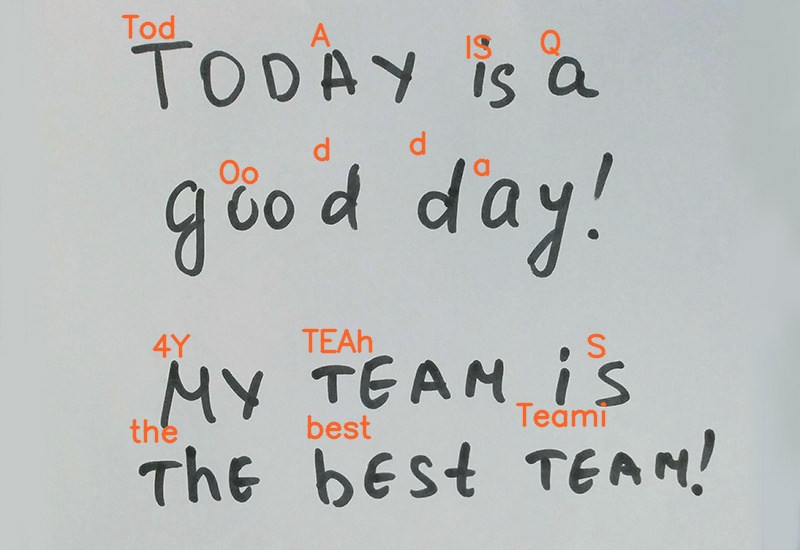 Tod A IS Q
TODAY is a
Oo d d a
good day!
4Y TEAh S
MY TEAM is
the best Teami
ThE bEst TEAM!